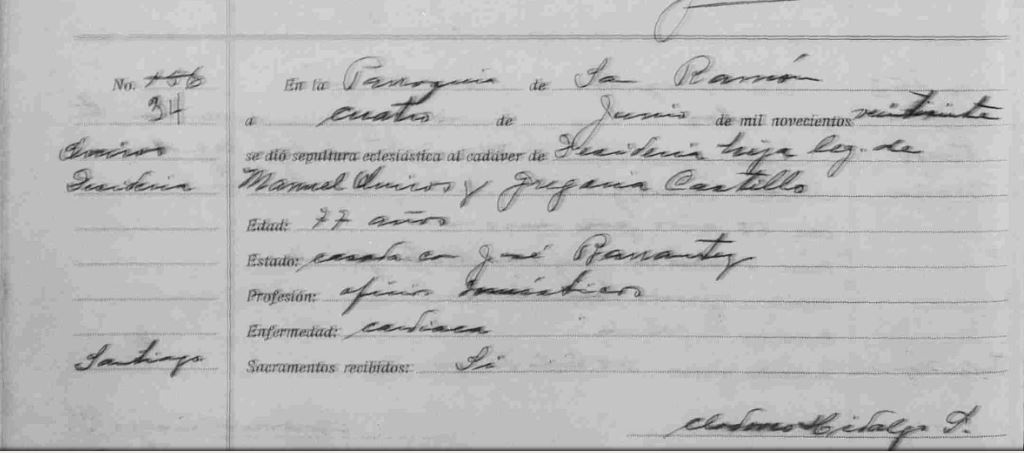 No. 156
34
En la Parroquia de Sn Ramón
a cuatro de Junio de mil novecientos
Quiros
se dió sepultura eclesiástica al cadáver de Desideria hija leg. de
Desideria
Manuel Quiros y Gregoria Castillo
Edad: 77 años
Estado: casada con José Barrantes
Profesión: oficios domésticos
Enfermedad: cardiaca
Santiago
Sacramentos recibidos: Si
Hidalgo